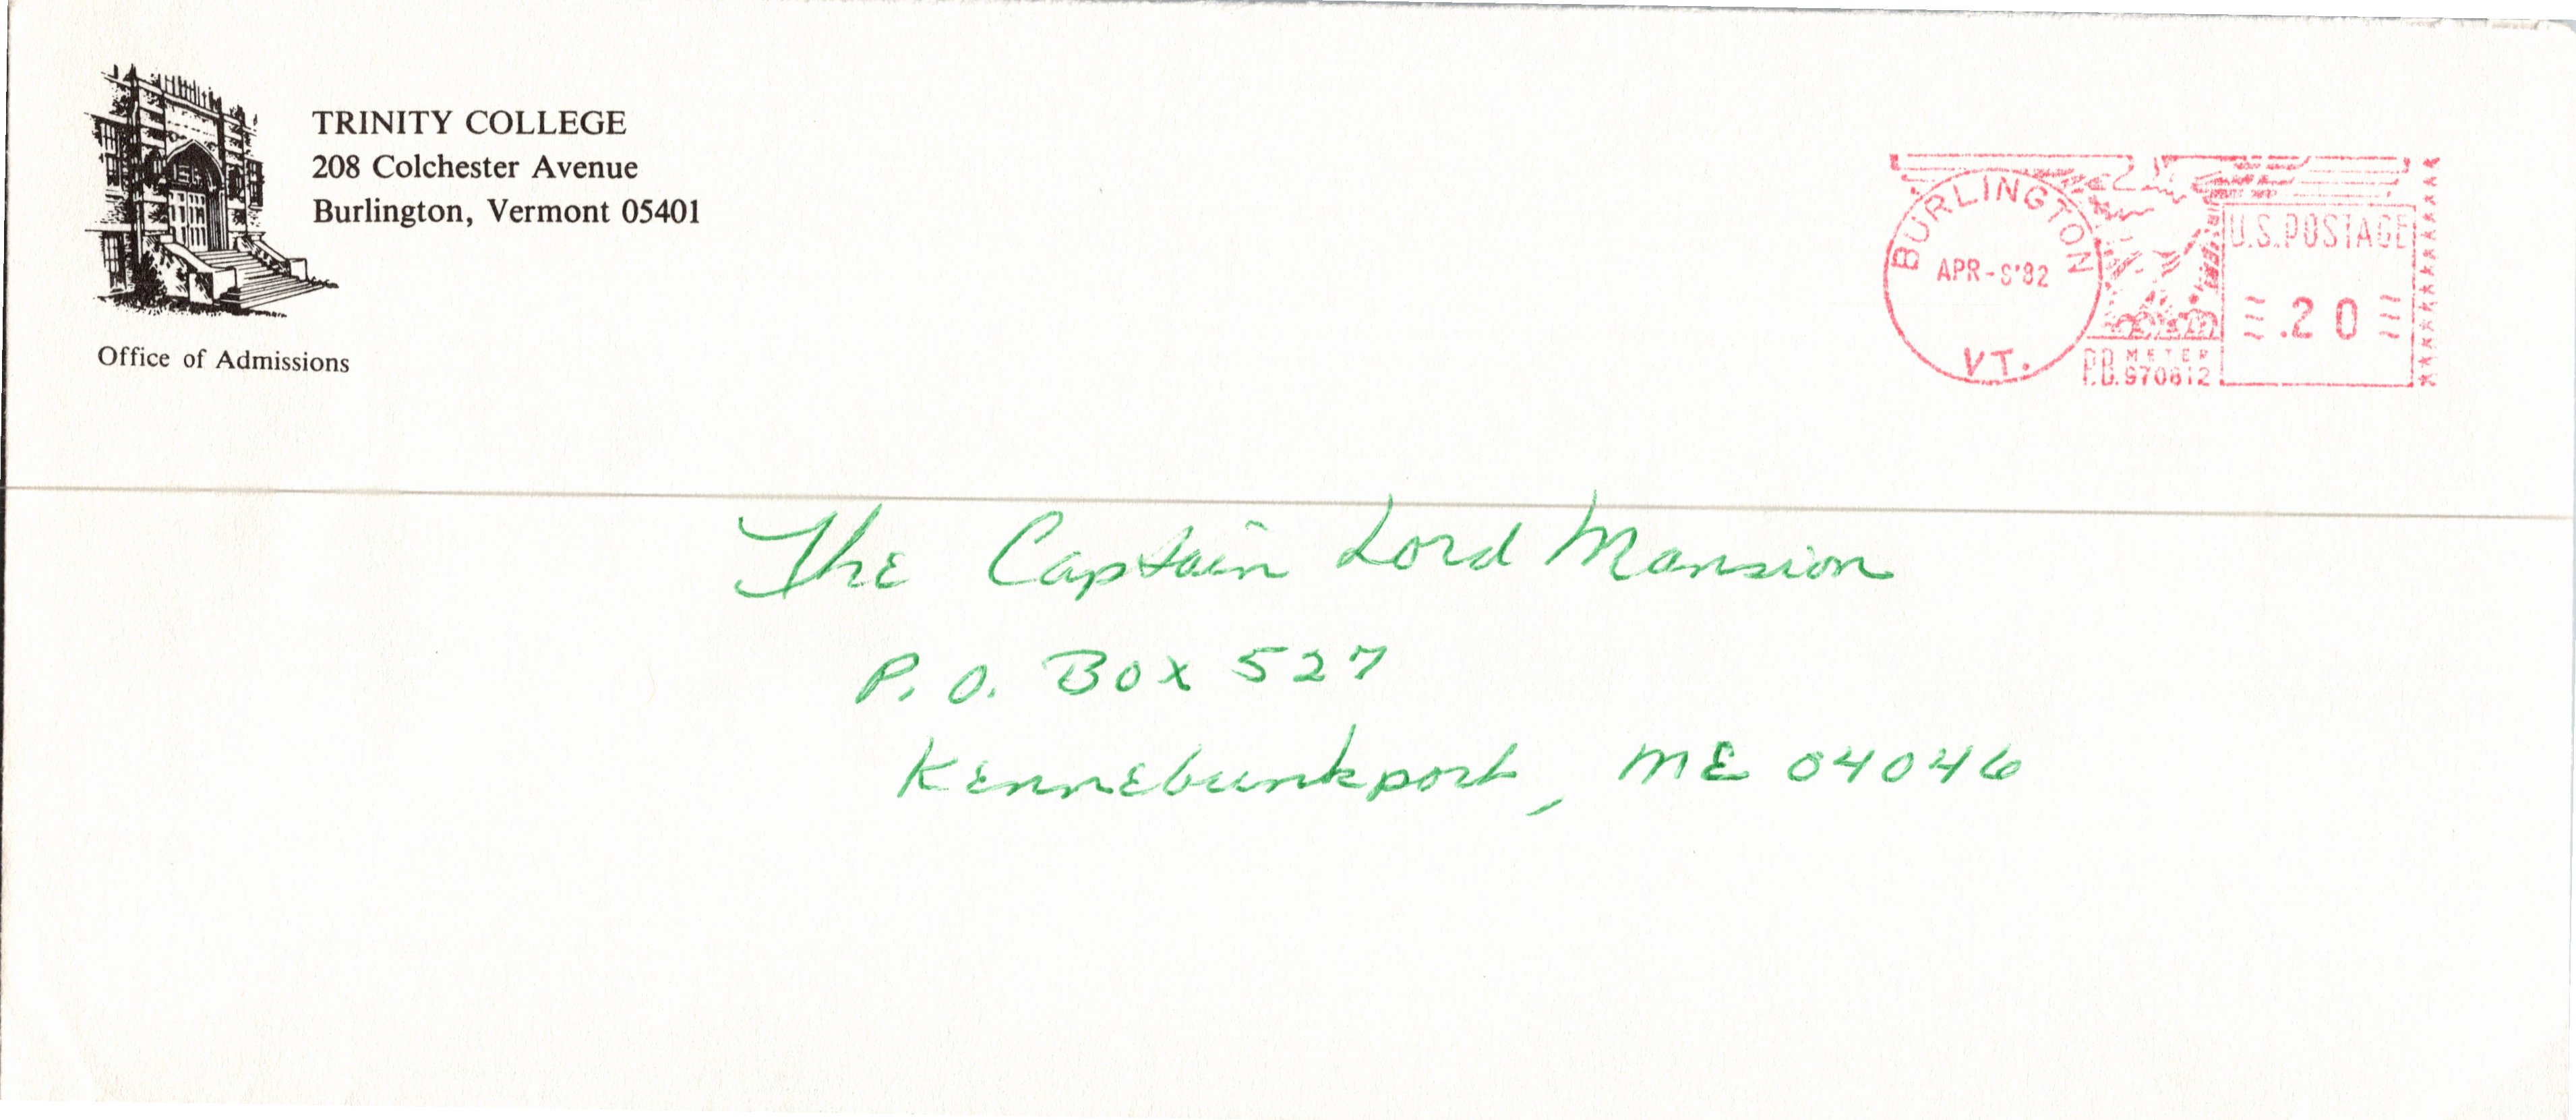 TRINITY COLLEGE
208 Colchester Avenue
Burlington, Vermont 05401
Office of Admissions
BURLINGTON
VT.
U.S. POSTAGE
.20
P.B. METER
The Captain Lord Mansion
P. O. Box 527
Kennebunkport, ME 04046